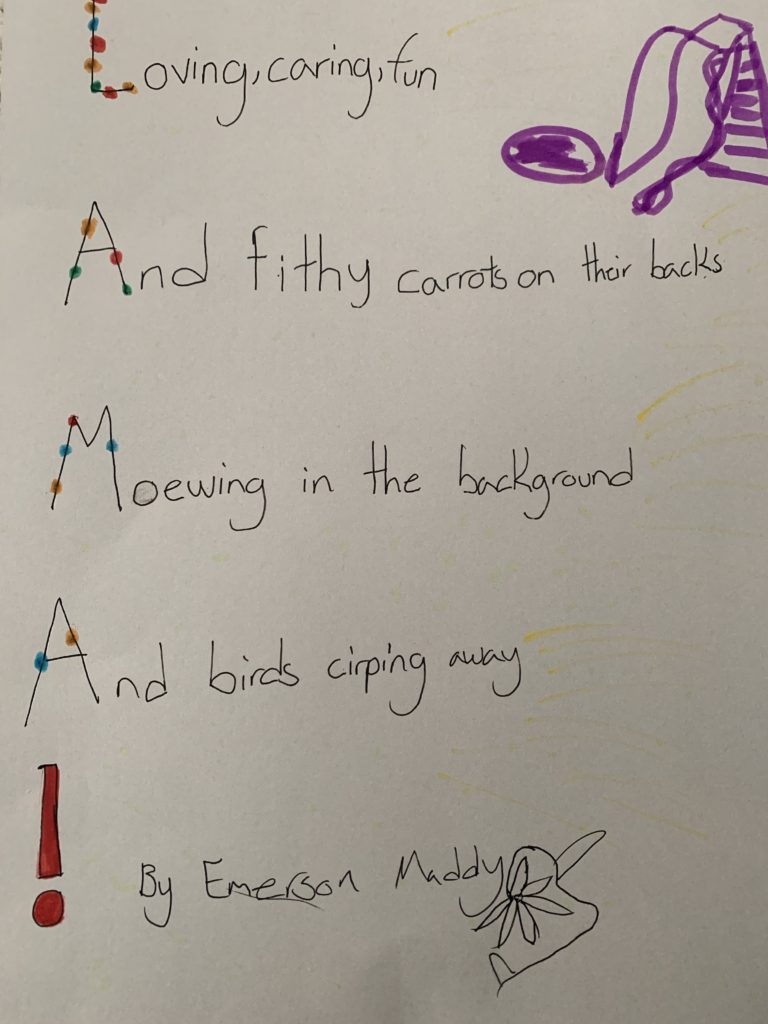 Loving, caring, fun
And fithy carrots on their backs
Moewing in the background
And birds cirping away
!
By Emerson Maddy